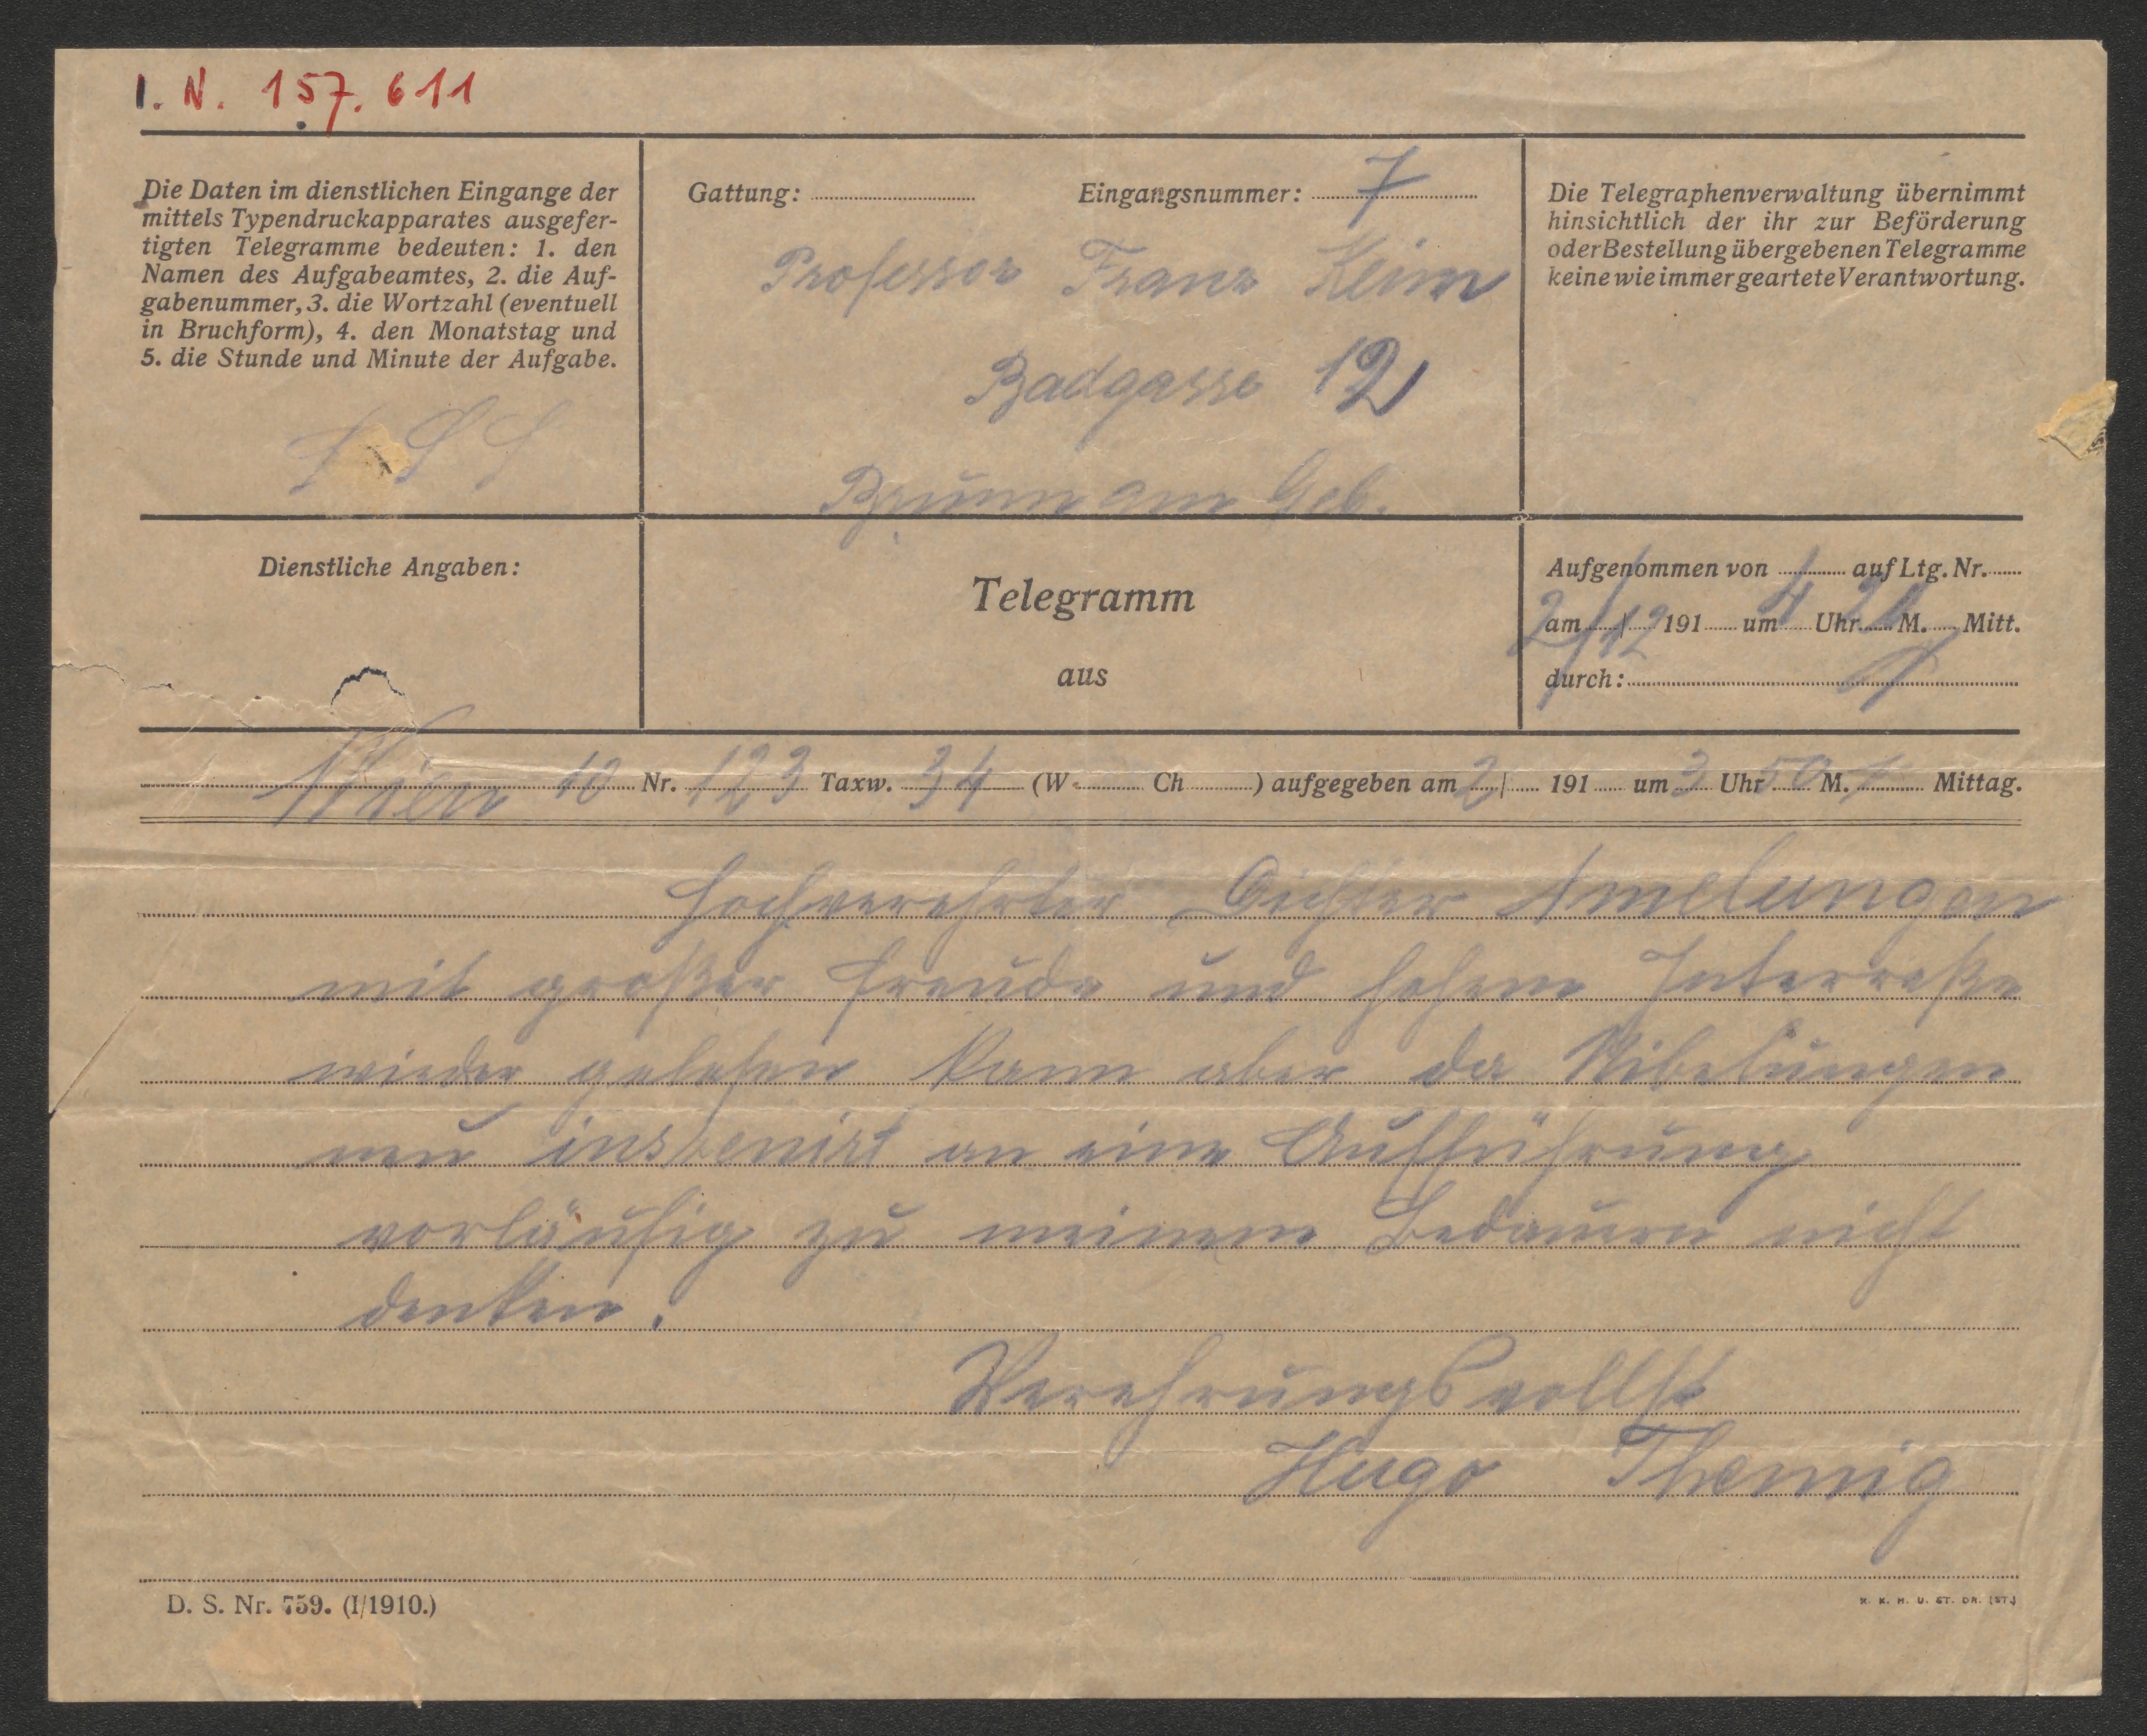 I. N. 157.611
Die Daten im dienstlichen Eingange der
mittels Typendruckapparates ausgefer-
tigten Telegramme bedeuten: 1. den
Namen des Aufgabeamtes, 2. die Auf-
gabenummer, 3. die Wortzahl (eventuell
in Bruchform), 4. den Monatstag und
5. die Stunde und Minute der Aufgabe.
Gattung: Eingangsnummer: 7
Professor Franz Keim
Badgasse 12
Brunn am Geb.
Die Telegraphenverwaltung übernimmt
hinsichtlich der ihr zur Beförderung
oder Bestellung übergebenen Telegramme
keine wie immer geartete Verantwortung.
Dienstliche Angaben:
Telegramm
aus
Aufgenommen von auf Ltg. Nr.
am 2/12 191 um 4 Uhr M. Mitt.
durch:
Wien 10 Nr. 123 Taxw. 34 (W. Ch ) aufgegeben am 2/ 191 um 3 Uhr 50 M. Mittag.
Hochverehrter Dichter Amelungen
mit großer Freude und hohem Interreße
wieder gelesen kann aber da Nibelungen
neu inszenirt an eine Aufführung
vorläufig zu meinem Bedauern nicht
denken.
Verehrungsvollst
Hugo Themig
D. S. Nr. 759. (I/1910.)
K. K. H. U. ST. DR. (ST.)